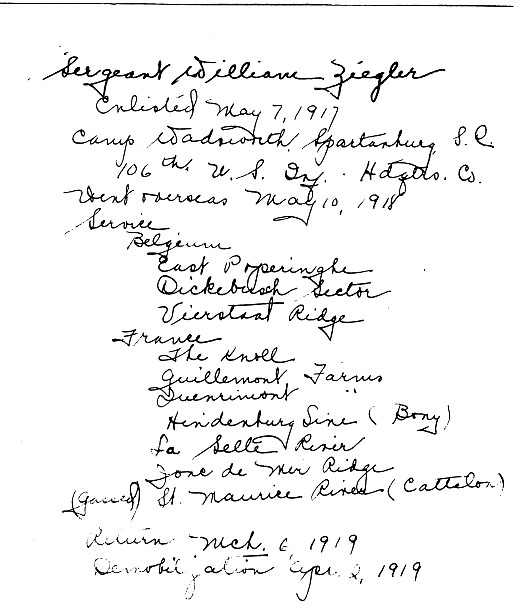 Sergeant William Ziegler
Enlisted May 7, 1917
Camp Wadsworth, Spartanburg S.C.
106th. U. S. Inf. . Hdqtrs. Co.
Went overseas May 10, 1918
Service
Belgium
East Poperinghe
Dickebusch Sector
Vierstaat Ridge
France
The Knoll
Guillemont Farms
Quenrimont "
Hindenburg Line (Bony)
La Selle River
Jonc de Mer Ridge
(gassed) St. Maurice River (Cattelon)
Return Mch. 6, 1919
Demobilization Apr. 2, 1919